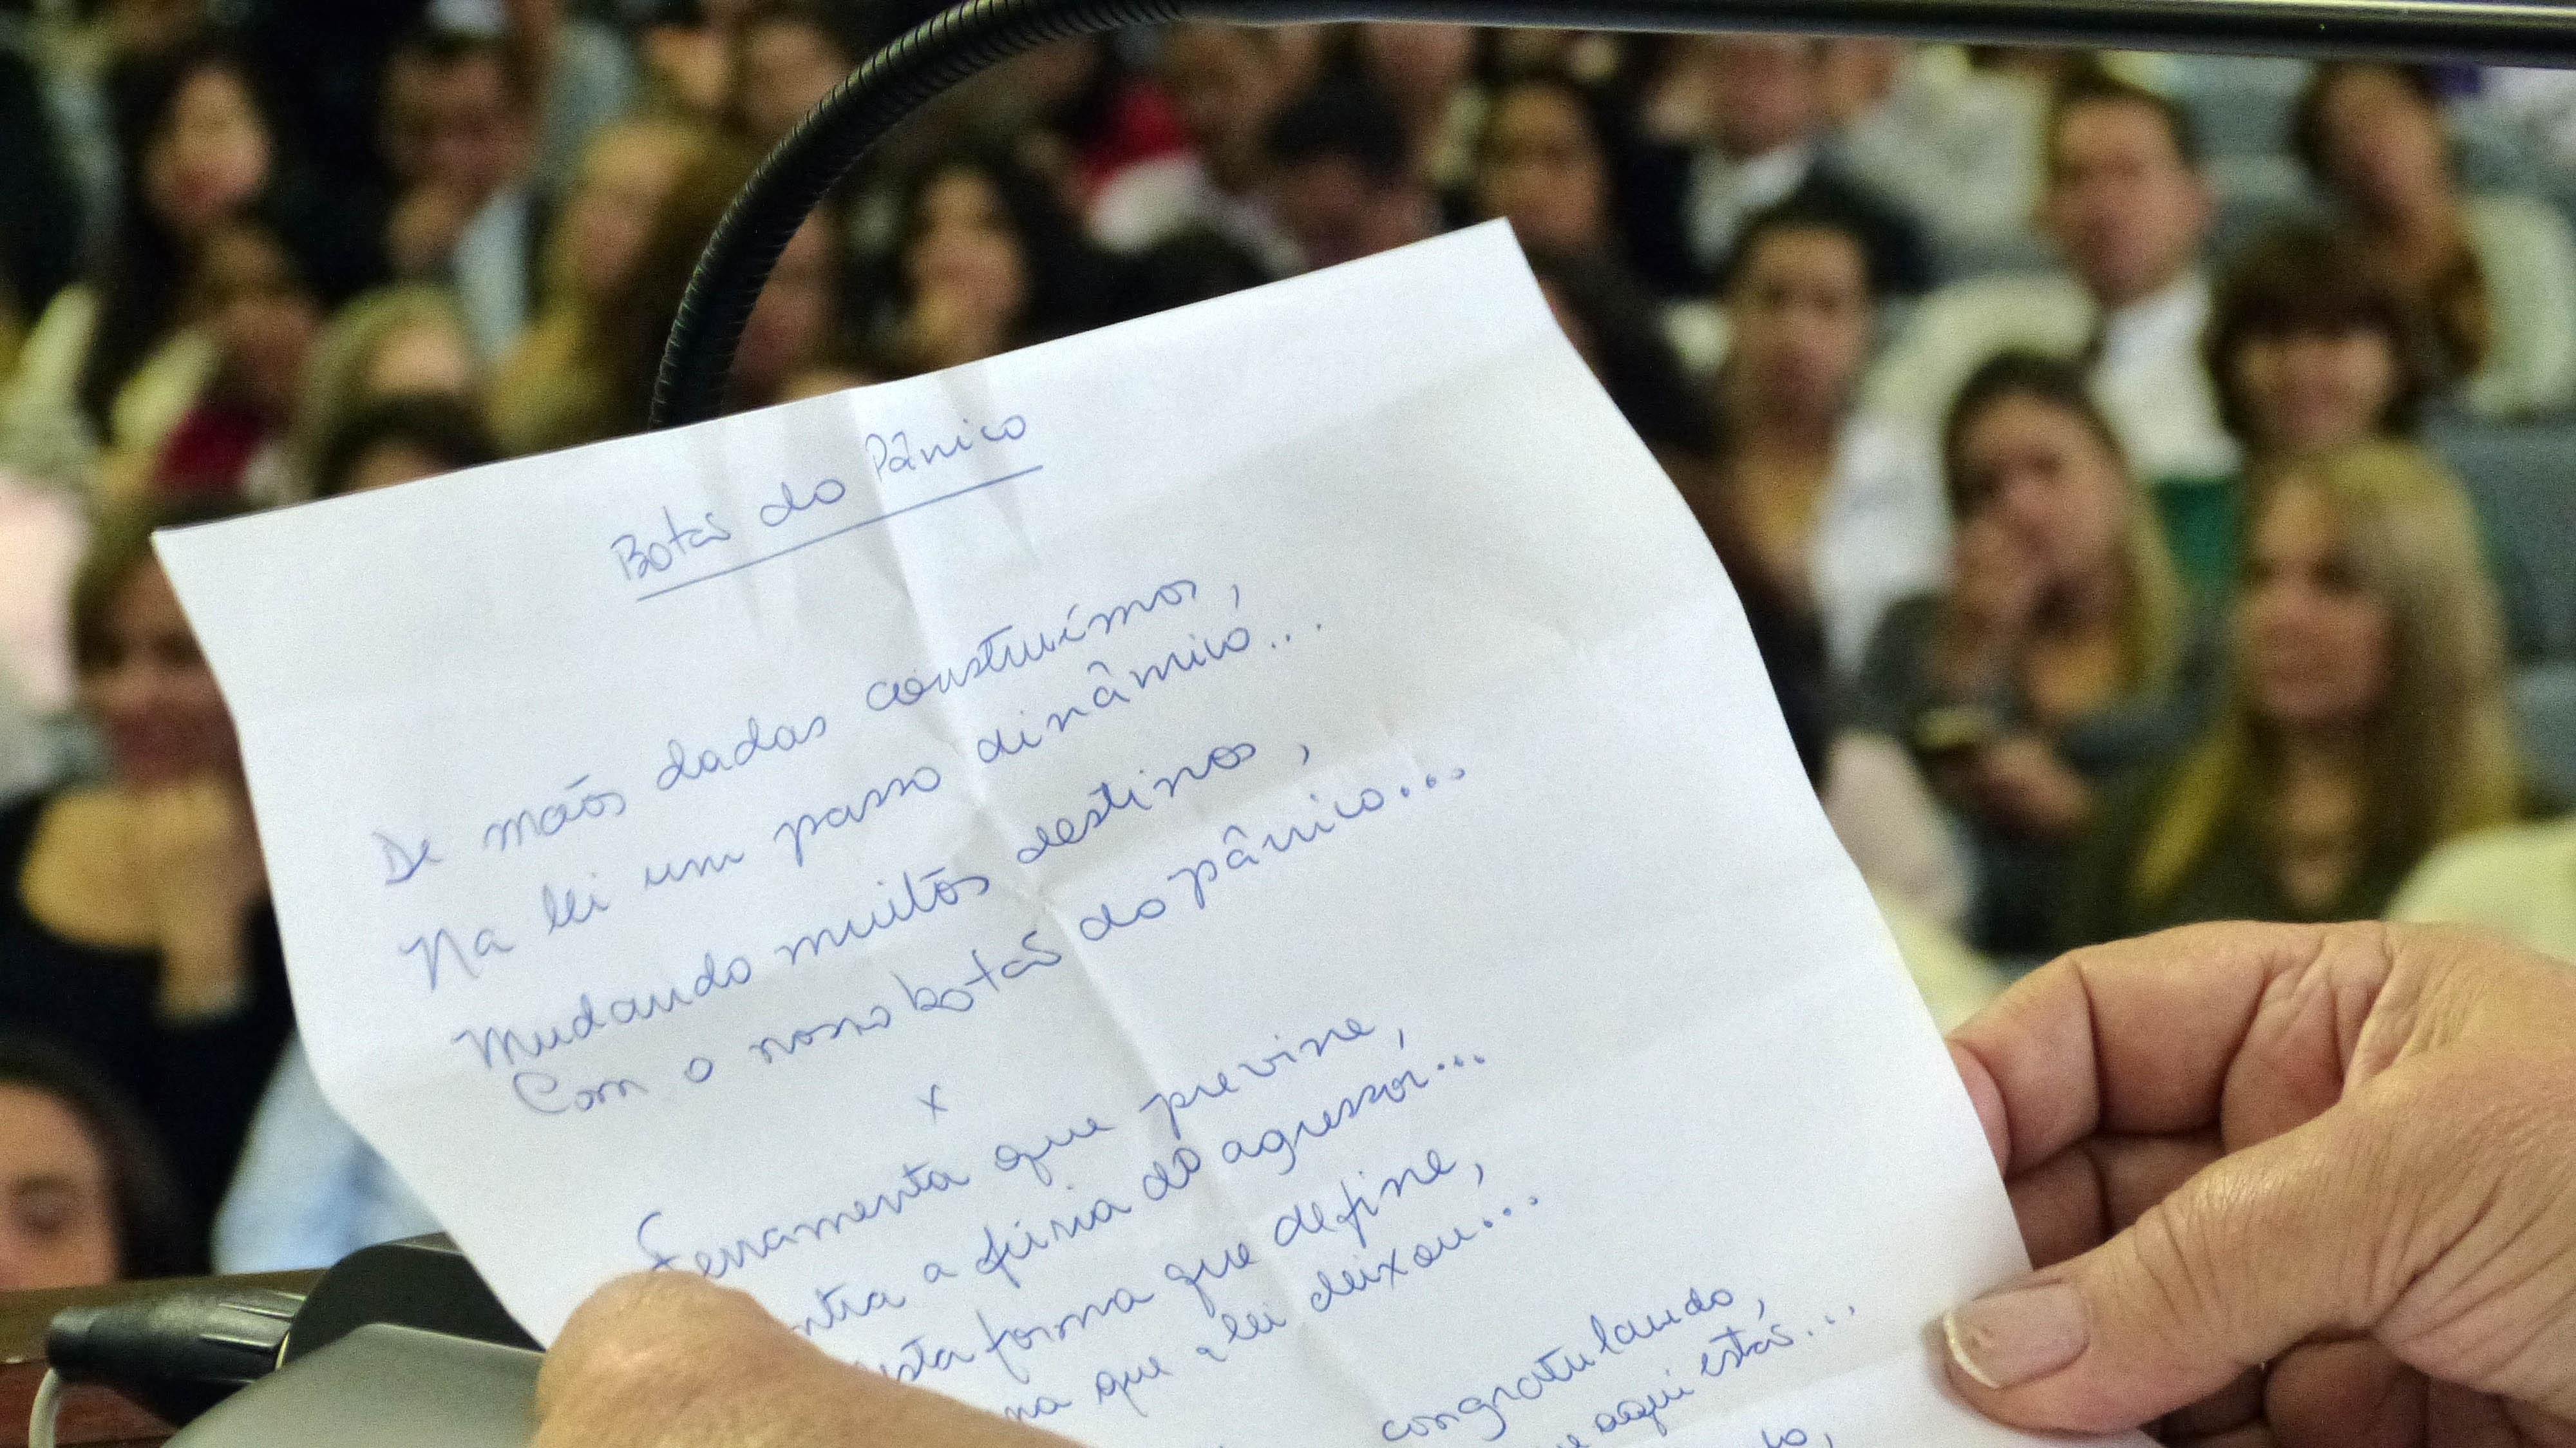 Botão do Pânico
De mãos dadas construímos,
Na lei um passo dinâmico...
Mudando muitos destinos,
Com o nosso botão do pânico...
x
Ferramenta que previne,
a fúria do agressor...
forma que define,
que a lei deixou...
congratulando,
aqui estão...